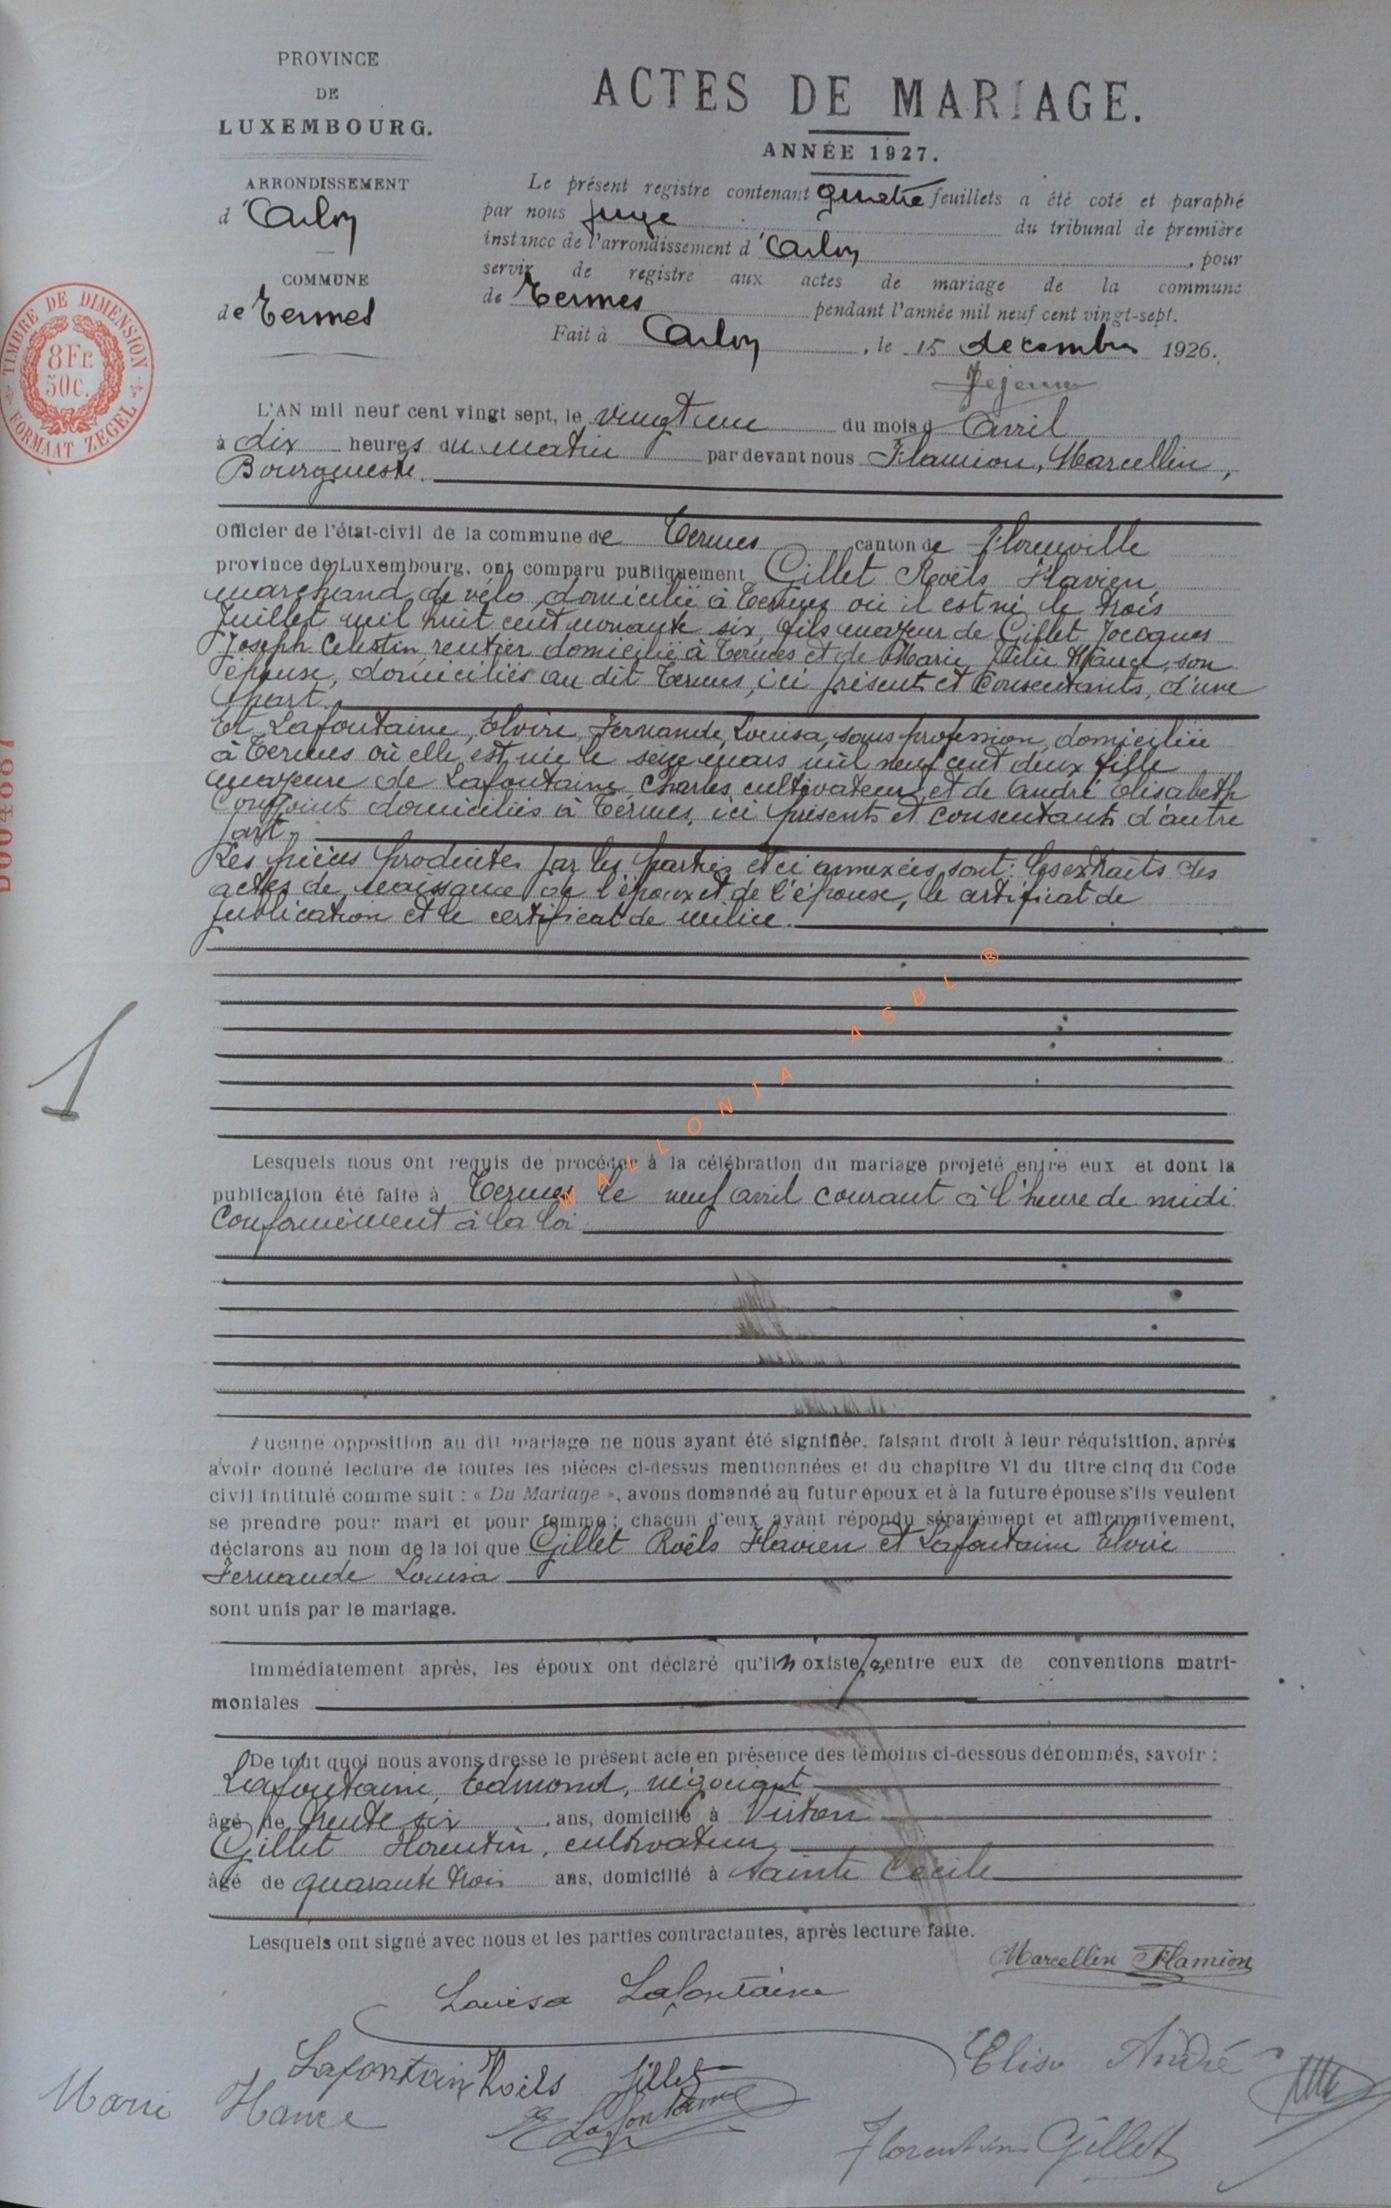 PROVINCE
DE
LUXEMBOURG.
ARRONDISSEMENT
d'Arlon
COMMUNE
de Termes
TIMBRE DE DIMENSION
8 Fr.
50 c.
FORMAAT ZEGEL
ACTES DE MARIAGE.
ANNÉE 1927.
Le présent registre contenant quatre feuillets a été coté et paraphé
par nous juge du tribunal de première
instance de l'arrondissement d'Arlon, pour
servir de registre aux actes de mariage de la commune
de Termes pendant l'année mil neuf cent vingt-sept.
Fait à Arlon, le 15 decembre 1926.
L'AN mil neuf cent vingt sept, le vingt un du mois d'Avril
à dix heures du matin par devant nous Flamion, Marcellin,
Bourgmestre.
Officier de l'état-civil de la commune de Termes canton de Florenville
province de Luxembourg, ont comparu publiquement Gillet Roëls Flavien
marchand de vélo, domicilié à Termes où il est né le trois
Juillet mil huit cent nonante six, fils majeur de Gillet Jocques
Joseph Celestin rentier domicilié à Termes et de Marie Hance, son
épouse, domiciliés au dit Termes, ici présents et consentants, d'une
part.
Et Lafontaine, Elvire, Fernande, Louisa, sans profession, domiciliée
à Termes où elle est née le seize mars mil neuf cent deux fille
majeure de Lafontaine Charles, cultivateur et de André Elisabeth
conjoints domiciliés à Termes, ici présents et consentants d'autre
part.
Les pièces produites par les parties et ci annexées sont: les extraits des
actes de naissance de l'époux et de l'épouse, le certificat de
publication et le certificat de milice.
1
WALLONIA ASBL ®
Lesquels nous ont requis de procéder à la célébration du mariage projeté entre eux et dont la
publication été faite à Termes le neuf avril courant à l'heure de midi
Conformément à la loi
Aucune opposition au dit mariage ne nous ayant été signifiée, faisant droit à leur réquisition, après
avoir donné lecture de toutes les pièces ci-dessus mentionnées et du chapitre VI du titre cinq du Code
civil intitulé comme suit : « Du Mariage », avons demandé au futur époux et à la future épouse s'ils veulent
se prendre pour mari et pour femme ; chacun d'eux ayant répondu séparément et affirmativement,
déclarons au nom de la loi que Gillet Roëls Flavien et Lafontaine Elvire
Fernande Louisa
sont unis par le mariage.
Immédiatement après, les époux ont déclaré qu'il n'existe pas entre eux de conventions matri-
moniales
De tout quoi nous avons dressé le présent acte en présence des témoins ci-dessous dénommés, savoir :
Lafontaine, Edmond, négociant
âgé de trente six ans, domicilié à Virton
Gillet Florentin, cultivateur
âgé de quarante trois ans, domicilié à Sainte Cécile
Lesquels ont signé avec nous et les parties contractantes, après lecture faite.
Marcellin Flamion
Louisa Lafontaine
Elise André
Lafontaine Roëls Gillet
Marie Hance
Lafontaine
Florentin Gillet